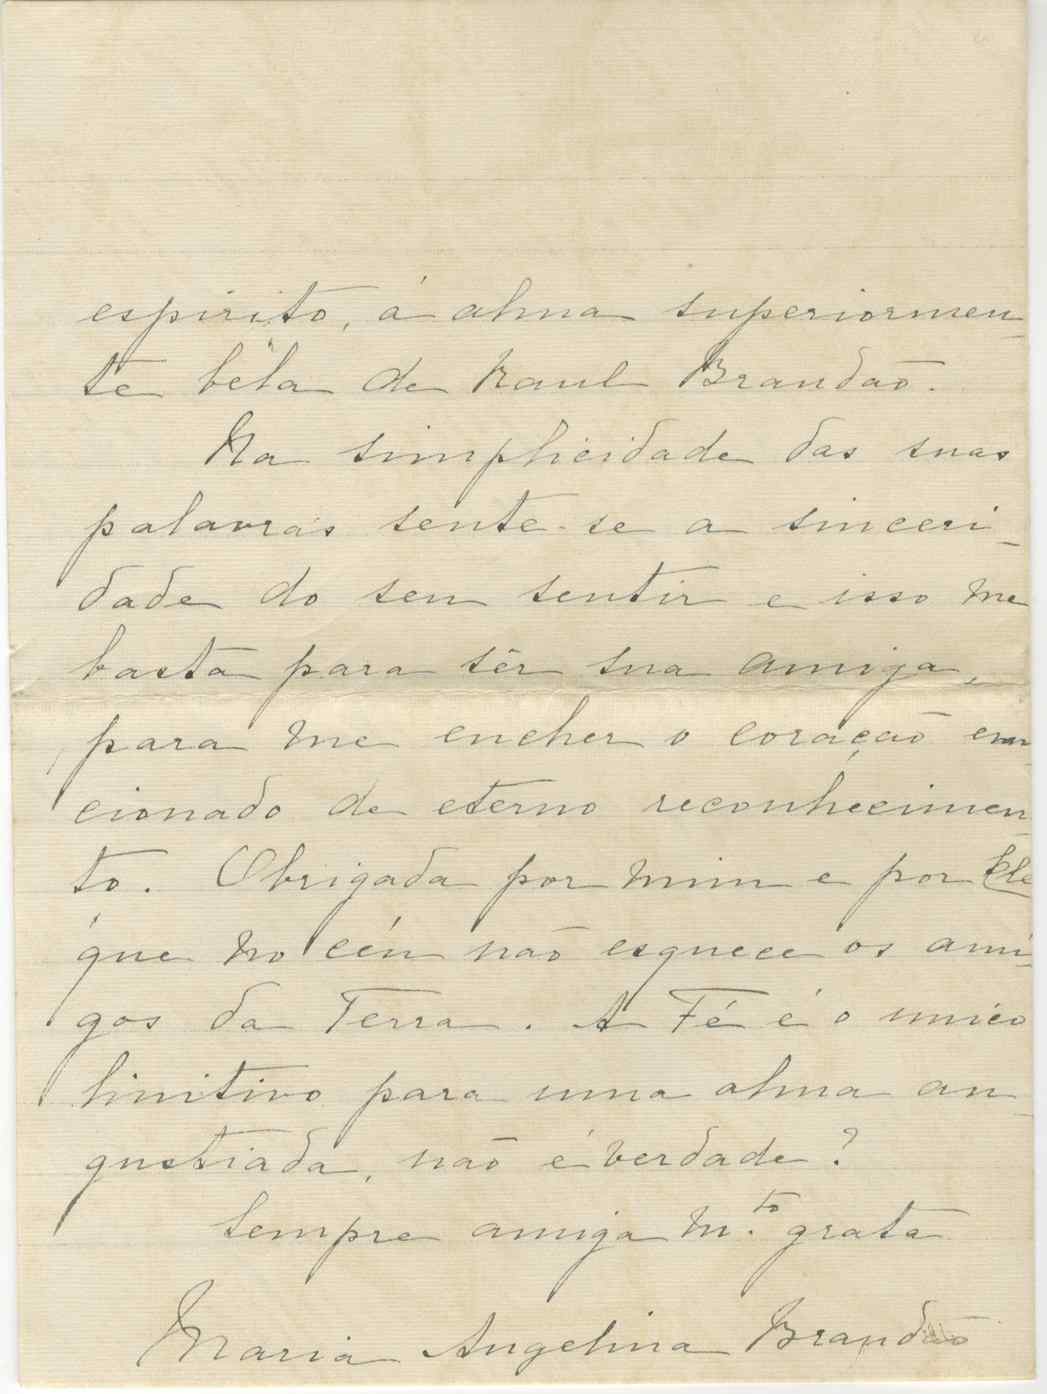 espirito, á alma superiormen_
te béla de Raul Brandão.
Na simplicidade das suas
palavras sente-se a sinceri_
dade do seu sentir e isso me
basta para sêr sua amiga,
para me encher o coração emo
cionado de eterno reconhecimen_
to. Obrigada por mim e por Ele
que no céu não esquece os ami_
gos da Terra. A Fé é o unico
linitivo para uma alma an_
gustiada, não é verdade?
Sempre amiga M.to grata
Maria Angelina Brandão